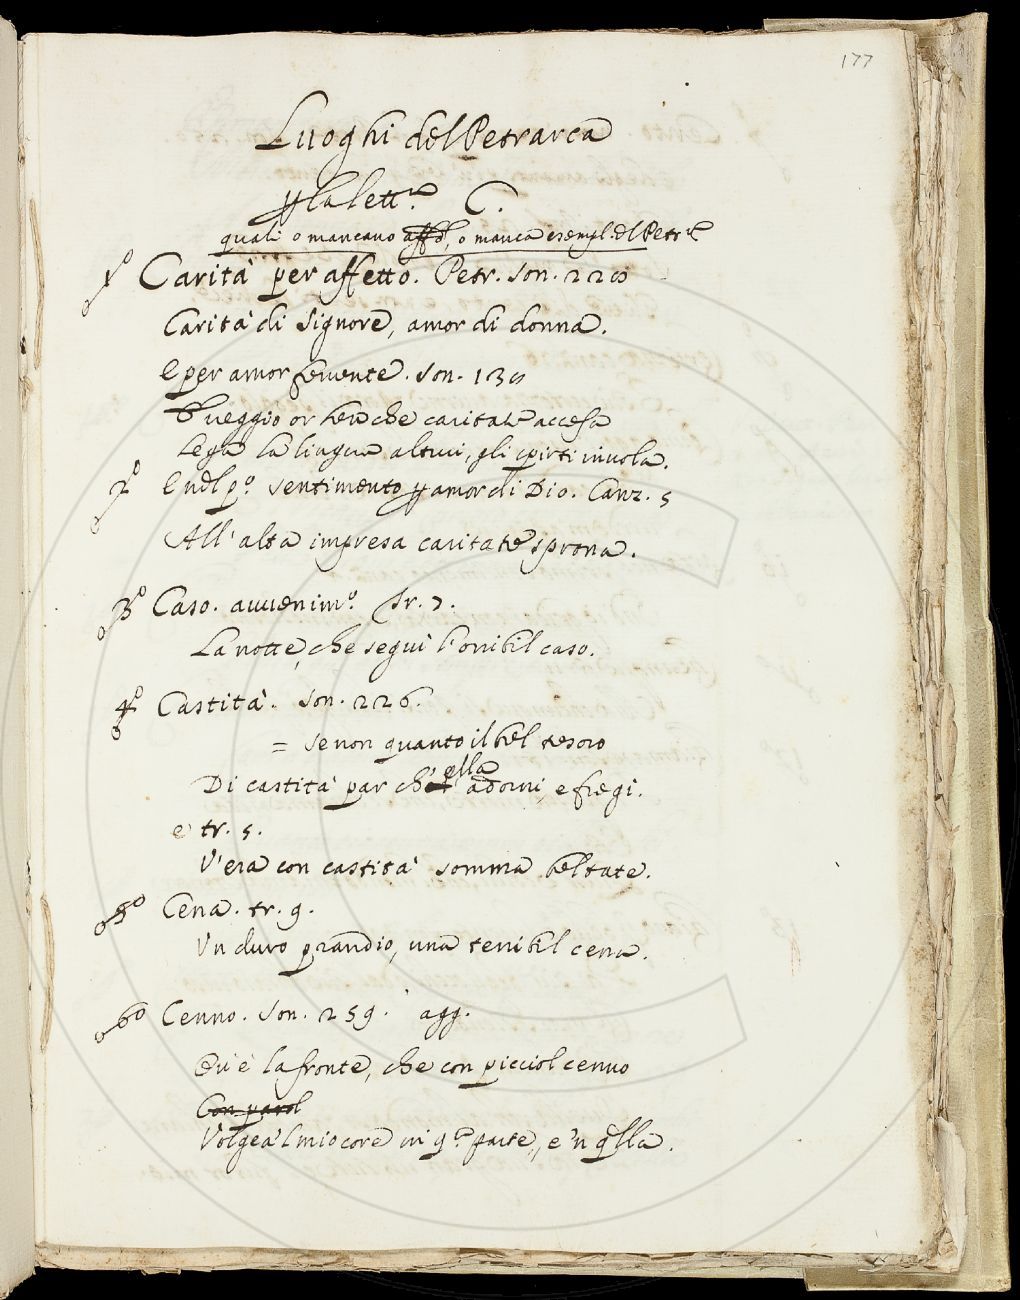 177
Luoghi del Petrarca
p la lett.ra C.
quali o mancano affō, o manca esempl. del Petr.ca
1º Carità per affetto. Petr. son. 220
Carità di Signore, amor di donna.
E per amor fervente. son. 130
E veggio or ben che caritate accesa
Lega la lingua altrui, gli spirti invola.
2º E nel p.º sentimento p amor di Dio. Canz. 5
All'alta impresa caritate sprona.
3º Caso. avvenim.º tr. 7.
La notte, che seguì l'orribil caso.
4º Castità. son. 226.
= se non quanto il bel tesoro
Di castità par ch'ella adorni, e fregi.
e tr. 5.
V'era con castità somma beltate.
5º Cena. tr. 9.
Un duro prandio, una terribil cena.
6º Cenno. son. 259. agg.
Ov'è la fronte, che con picciol cenno
Con parol
Volgea 'l mio core in q.sta parte, e 'n q̄lla.